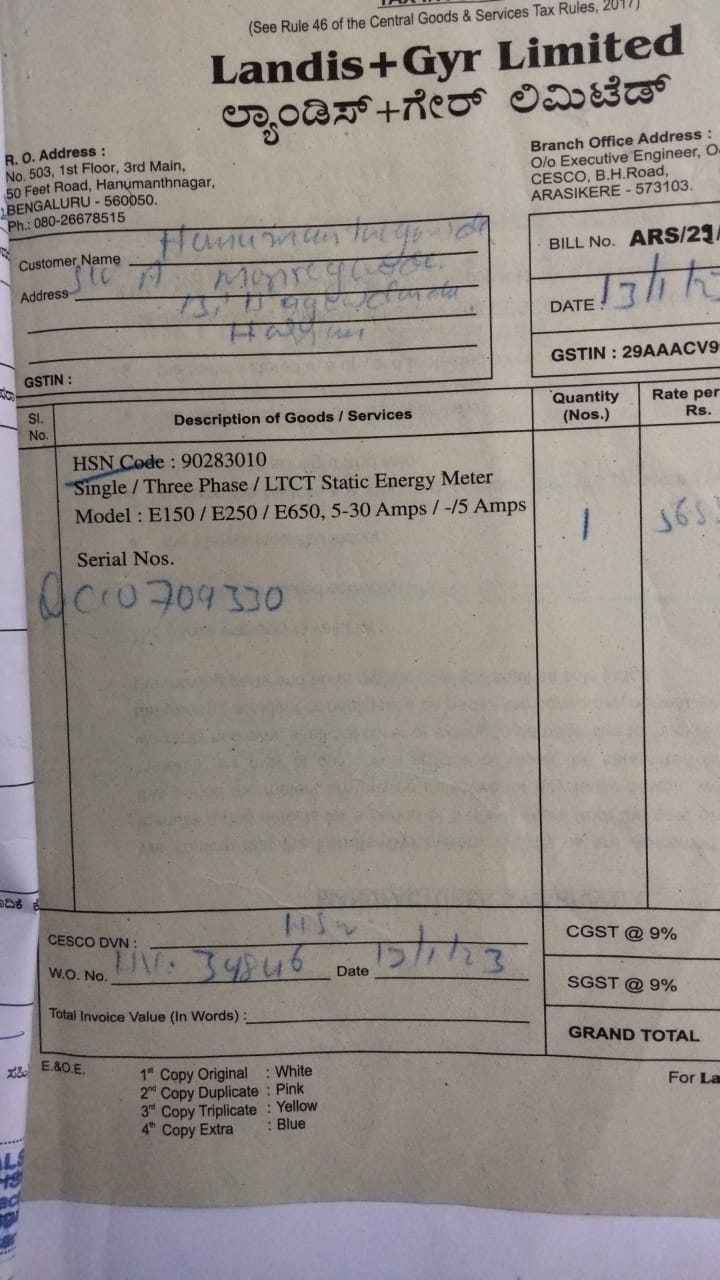 (See Rule 46 of the Central Goods & Services Tax Rules, 2017)
Landis+Gyr Limited
ಲ್ಯಾಂಡಿಸ್+ಗೇರ್ ಲಿಮಿಟೆಡ್
R. O. Address :
No. 503, 1st Floor, 3rd Main,
50 Feet Road, Hanumanthnagar,
BENGALURU - 560050.
Ph.: 080-26678515
Branch Office Address :
O/o Executive Engineer,
CESCO, B.H.Road,
ARASIKERE - 573103.
Customer Name
Address
GSTIN :
BILL No. ARS/21/
DATE : 13/1/
GSTIN : 29AAACV9
Sl. No.
Description of Goods / Services
Quantity (Nos.)
Rate per Rs.
HSN Code : 90283010
Single / Three Phase / LTCT Static Energy Meter
Model : E150 / E250 / E650, 5-30 Amps / -/5 Amps
1
Serial Nos.
709330
CESCO DVN :
W.O. No. 34846 Date 12/1/23
Total Invoice Value (In Words) :
CGST @ 9%
SGST @ 9%
GRAND TOTAL
E.&O.E.
1st Copy Original : White
2nd Copy Duplicate : Pink
3rd Copy Triplicate : Yellow
4th Copy Extra : Blue
For La